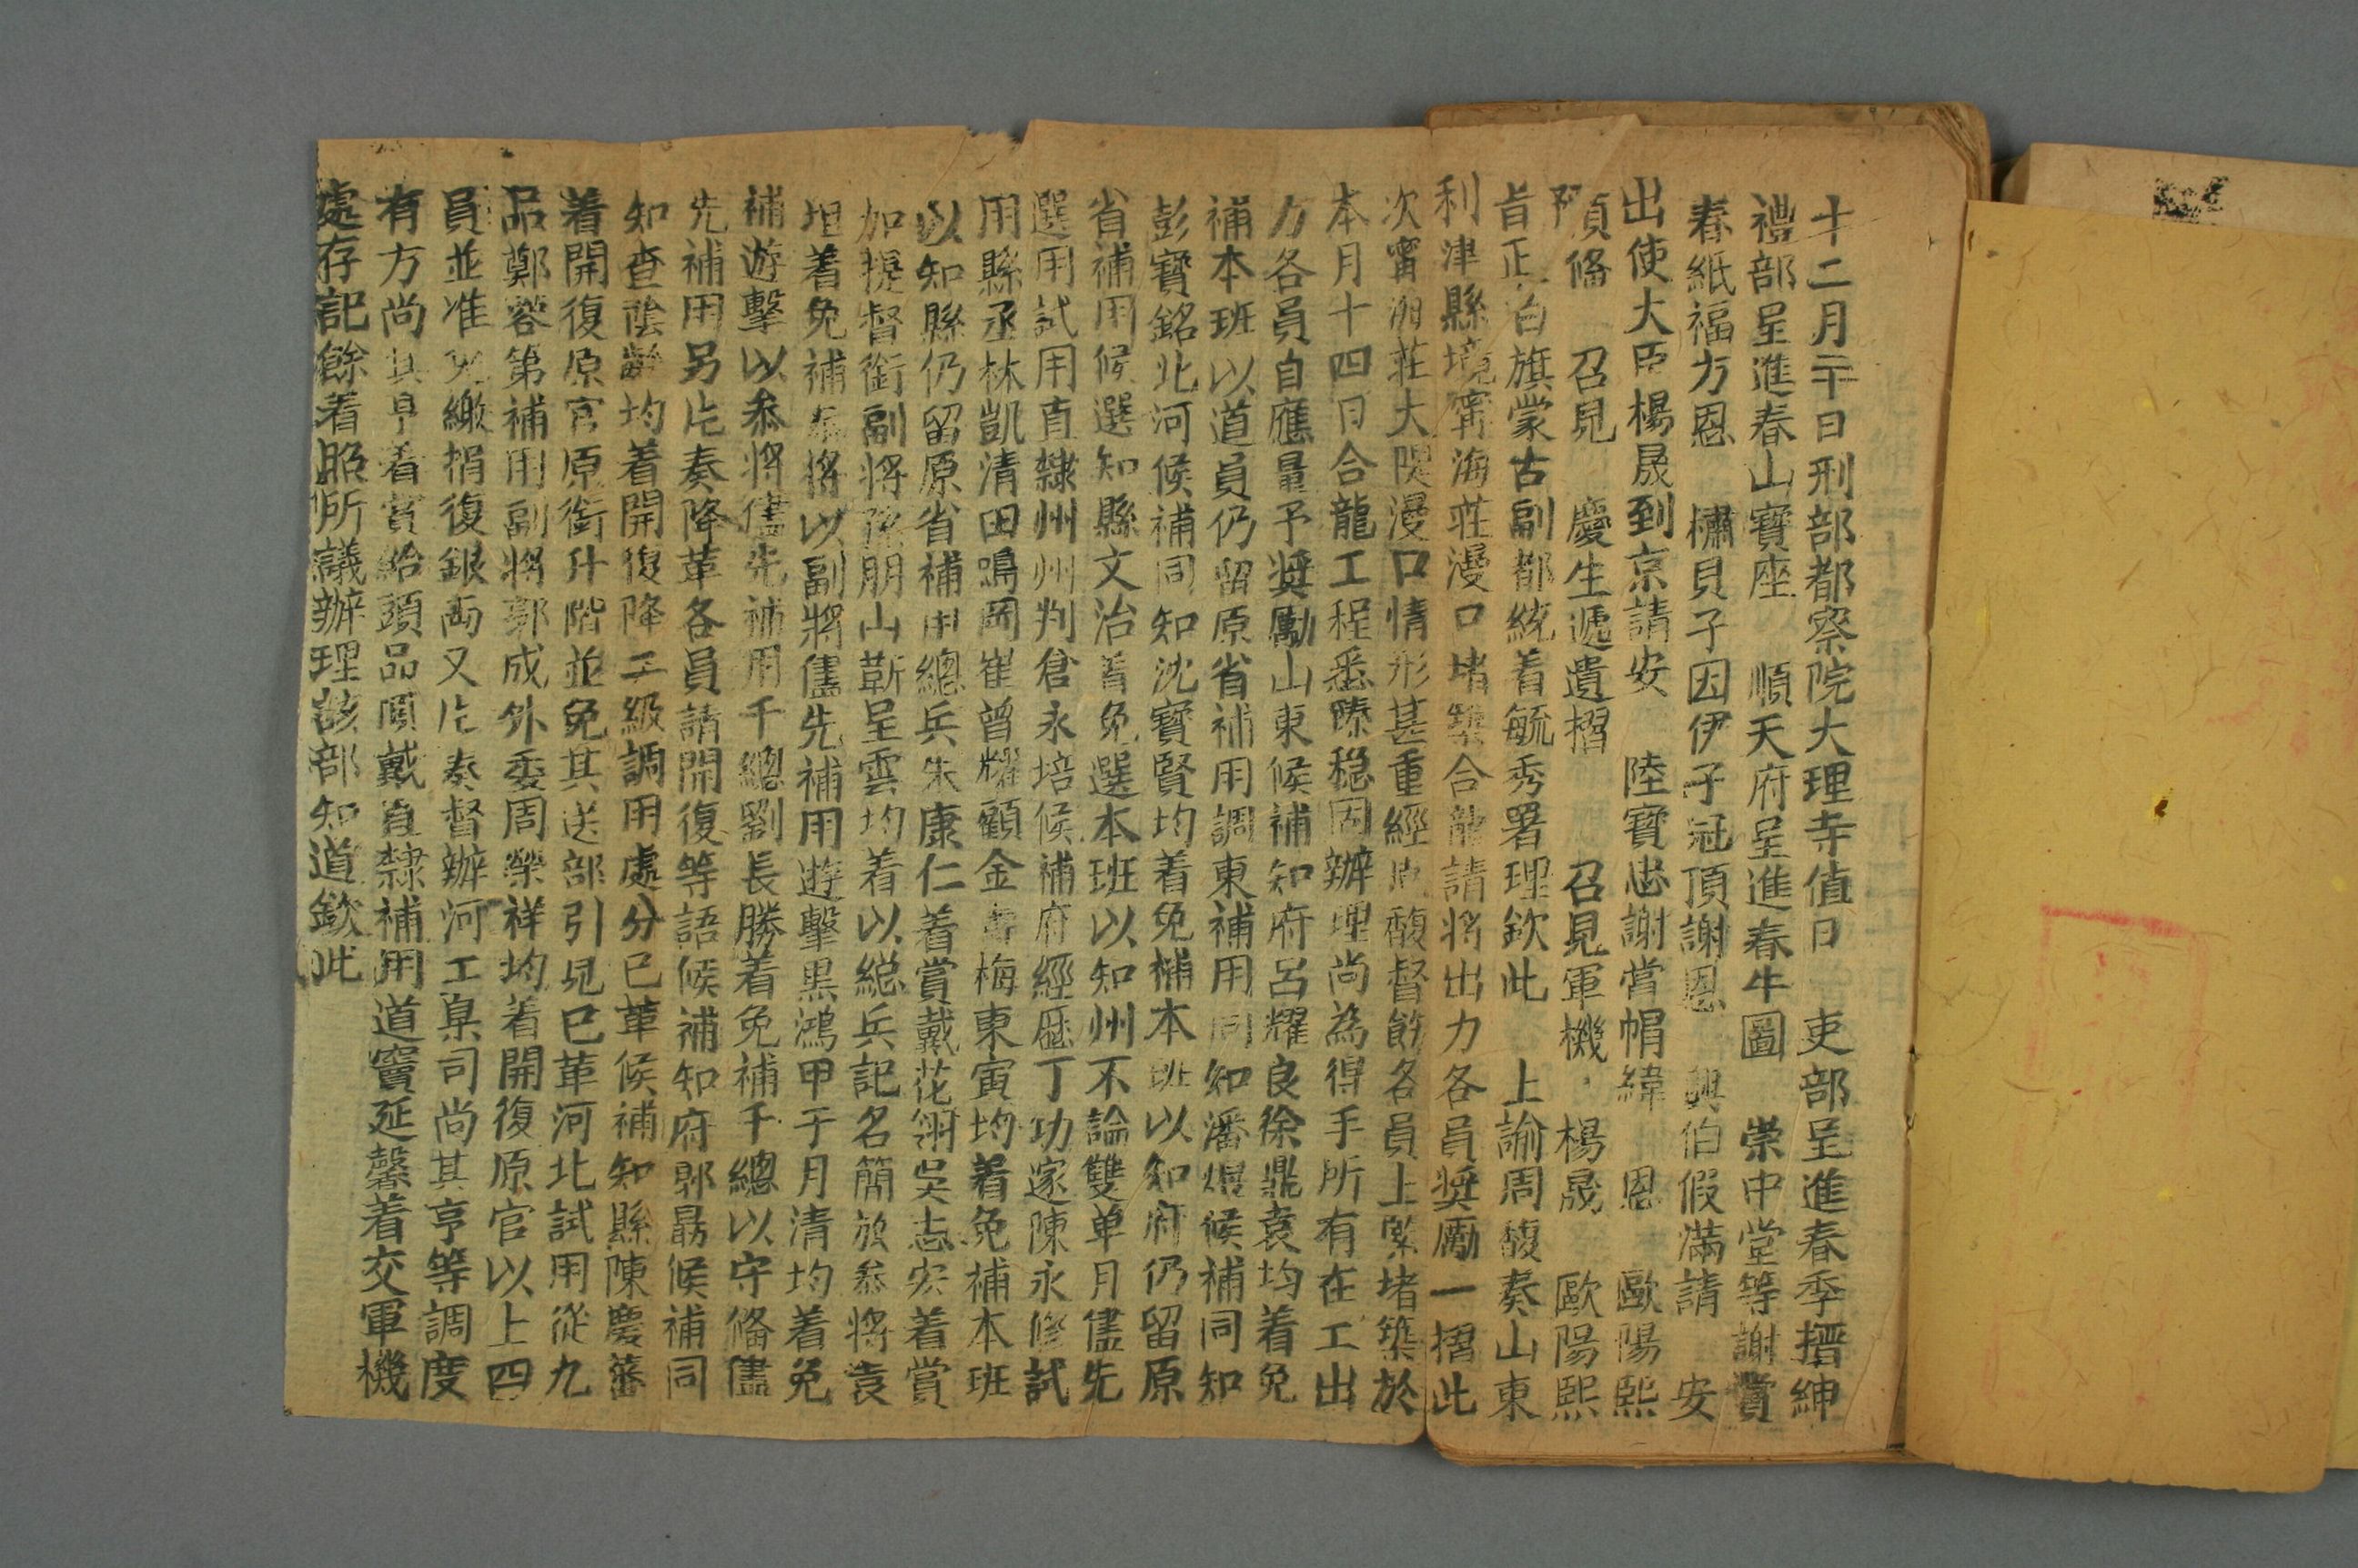 十二月二十日刑部都察院大理寺值日 吏部呈進春季搢紳
禮部呈進春山寶座 順天府呈進春牛圖 崇中堂等謝賞
春紙福方恩 橚貝子因伊子冠頂謝恩 興伯假滿請 安
出使大臣楊晟到京請安 陸寶忠謝賞帽緯 恩 歐陽熙
預備 召見 慶生遞遺摺 召見軍機 楊晟 歐陽熙
旨正白旗蒙古副都統着毓秀署理欽此 上諭周馥奏山東
利津縣境甯海莊漫口堵築合龍請將出力各員獎勵一摺此
次甯海莊大段漫口情形甚重經周馥督飭各員上緊堵築於
本月十四日合龍工程悉臻穩固辦理尚為得手所有在工出
力各員自應量予獎勵山東候補知府呂耀良徐鼎袁均着免
補本班以道員仍留原省補用調東補用同知潘焜候補同知
彭寶銘北河候補同知沈寶賢均着免補本班以知府仍留原
省補用候選知縣文治着免選本班以知州不論雙单月儘先
選用試用直隸州州判倉永培候補府經歷丁功遂陳永修試
用縣丞林凱清田鳴岡崔曾耀顧金壽梅東寅均着免補本班
以知縣仍留原省補用總兵朱康仁着賞戴花翎吳志宏着賞
加提督銜副將隆朋山靳呈雲均着以總兵記名簡放叅將袁
坦着免補叅將以副將儘先補用遊擊黑鴻甲于月清均着免
補遊擊以叅將儘先補用千總劉長勝着免補千總以守備儘
先補用另片奏降革各員請開復等語候補知府郭勗候補同
知查蔭齡均着開復降二級調用處分已革候補知縣陳慶蕃
着開復原官原銜升階並免其送部引見已革河北試用從九
品鄭蓉第補用副將郭成外委周榮祥均着開復原官以上四
員並准免繳捐復銀兩又片奏督辦河工臬司尚其亨等調度
有方尚其亨着賞給頭品頂戴直隸補用道竇延馨着交軍機
處存記餘着照所議辦理該部知道欽此